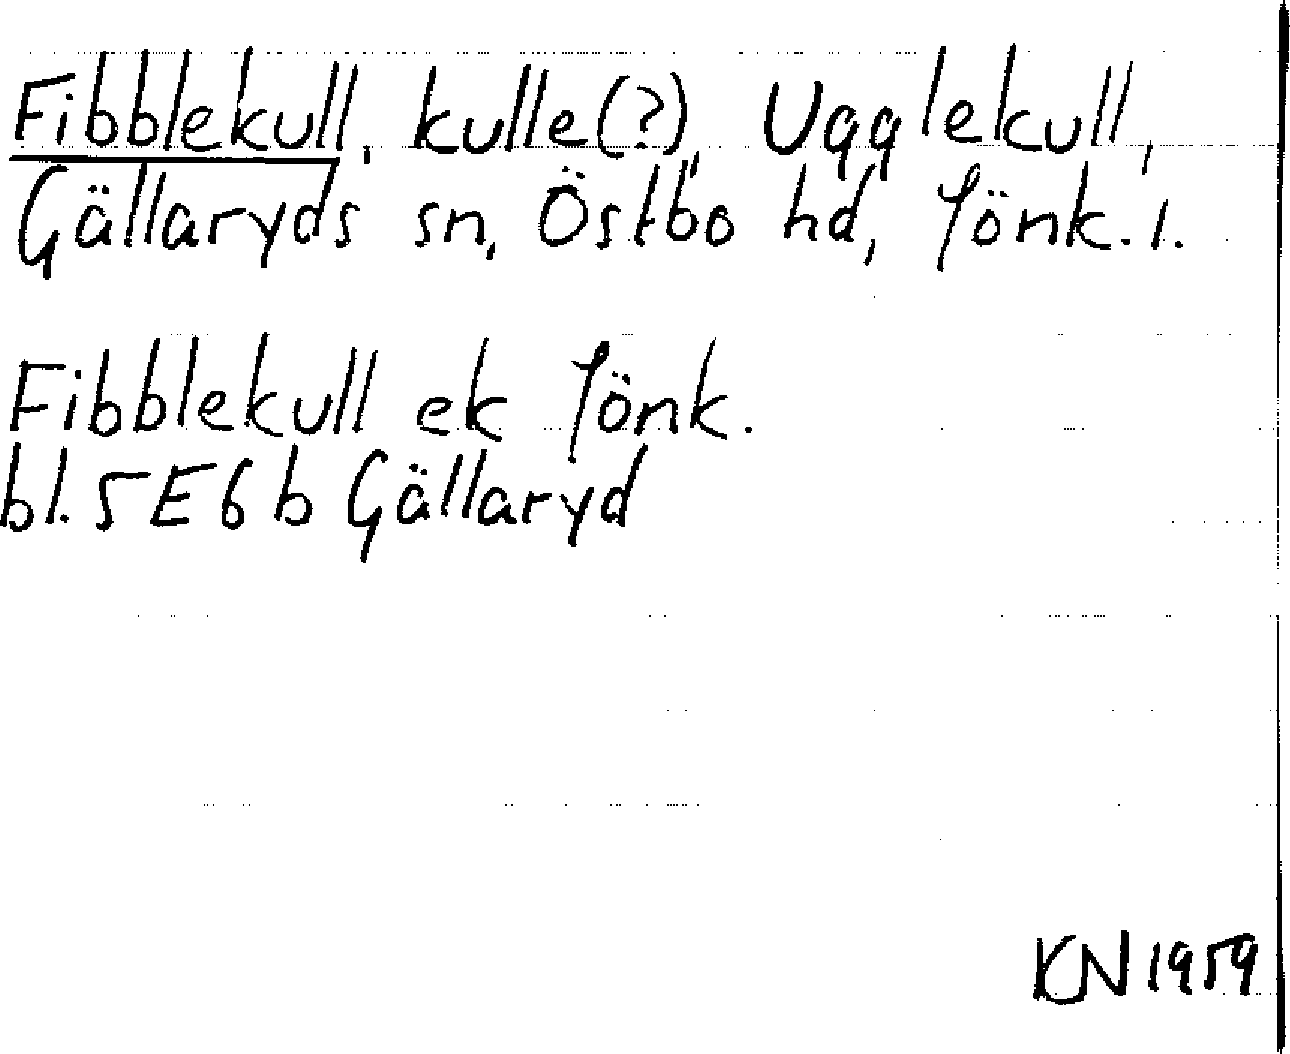 Fibblekull, kulle(?), Ugglekull,
Gällaryds sn, Östbo hd, Jönk. l.
Fibblekull ek Jönk.
bl. 5E6b Gällaryd
KN 1959